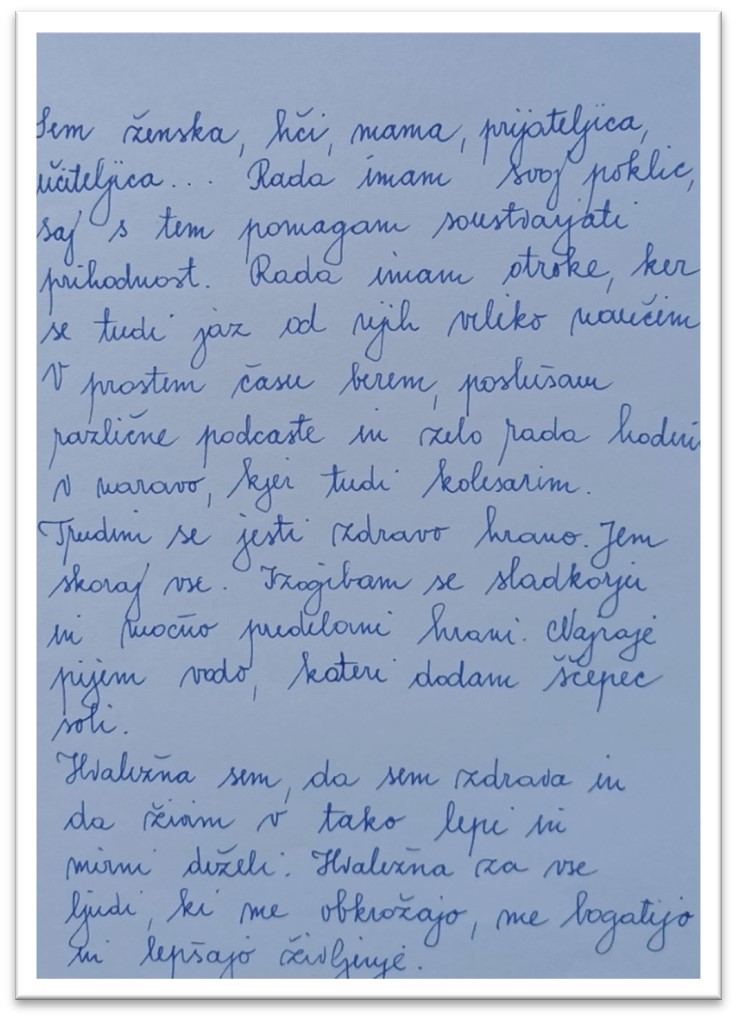 Sem ženska, hči, mama, prijateljica,
učiteljica... Rada imam svoj poklic,
saj s tem pomagam soustvarjati
prihodnost. Rada imam otroke, ker
se tudi jaz od njih veliko naučim
V prostem času berem, poslušam
različne podcaste in zelo rada hodim
v naravo, kjer tudi kolesarim.
Trudim se jesti zdravo hrano. Jem
skoraj vse. Izogibam se sladkorju
in močno predelani hrani. Najraje
pijem vodo, kateri dodam ščepec
soli.
Hvaležna sem, da sem zdrava in
da živim v tako lepi in
mirni deželi. Hvaležna za vse
ljudi, ki me obkrožajo, me bogatijo
in lepšajo življenje.